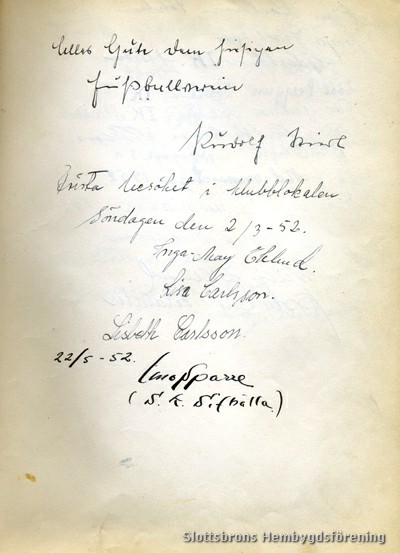 Alles Gute dem hiesigen
Fußballverein
Rudolf
Första besöket i klubblokalen
Söndagen den 2/3-52.
Inga-May Eklund.
Lisa Carlsson.
Lisbeth Carlsson.
22/5-52.
Sparre
Slottsbrons Hembygdsförening